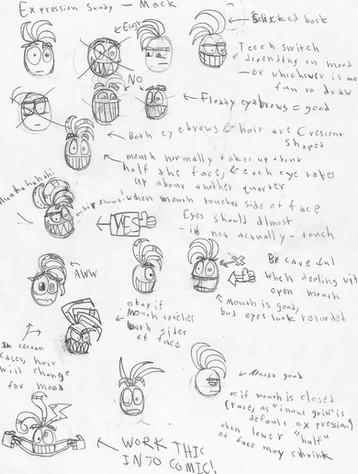 Expression Study — Mack
Eager
Slicked back
Teeth switch
depending on mood
— or whichever is mo
fun to draw
NO
Floppy eyebrows = good
Both eyebrows & hair are crescent
shaped
mouth normally takes up about
half the face, & each eye takes
up about another quarter
Muahahahah!
when mouth touches side of face
YES
Eyes should almost
- if not actually - touch
AWW
Be careful
when dealing wit
open mouth
Mouth is good,
but eyes look retarded
okay if
mouth touches
both sides
of face
In certain
cases, hair
will change
for mood
Almost good
if mouth is closed
(rare, as "insane grin" is
default expression)
then lower "half"
of face may shrink
WORK THIS
INTO COMIC!